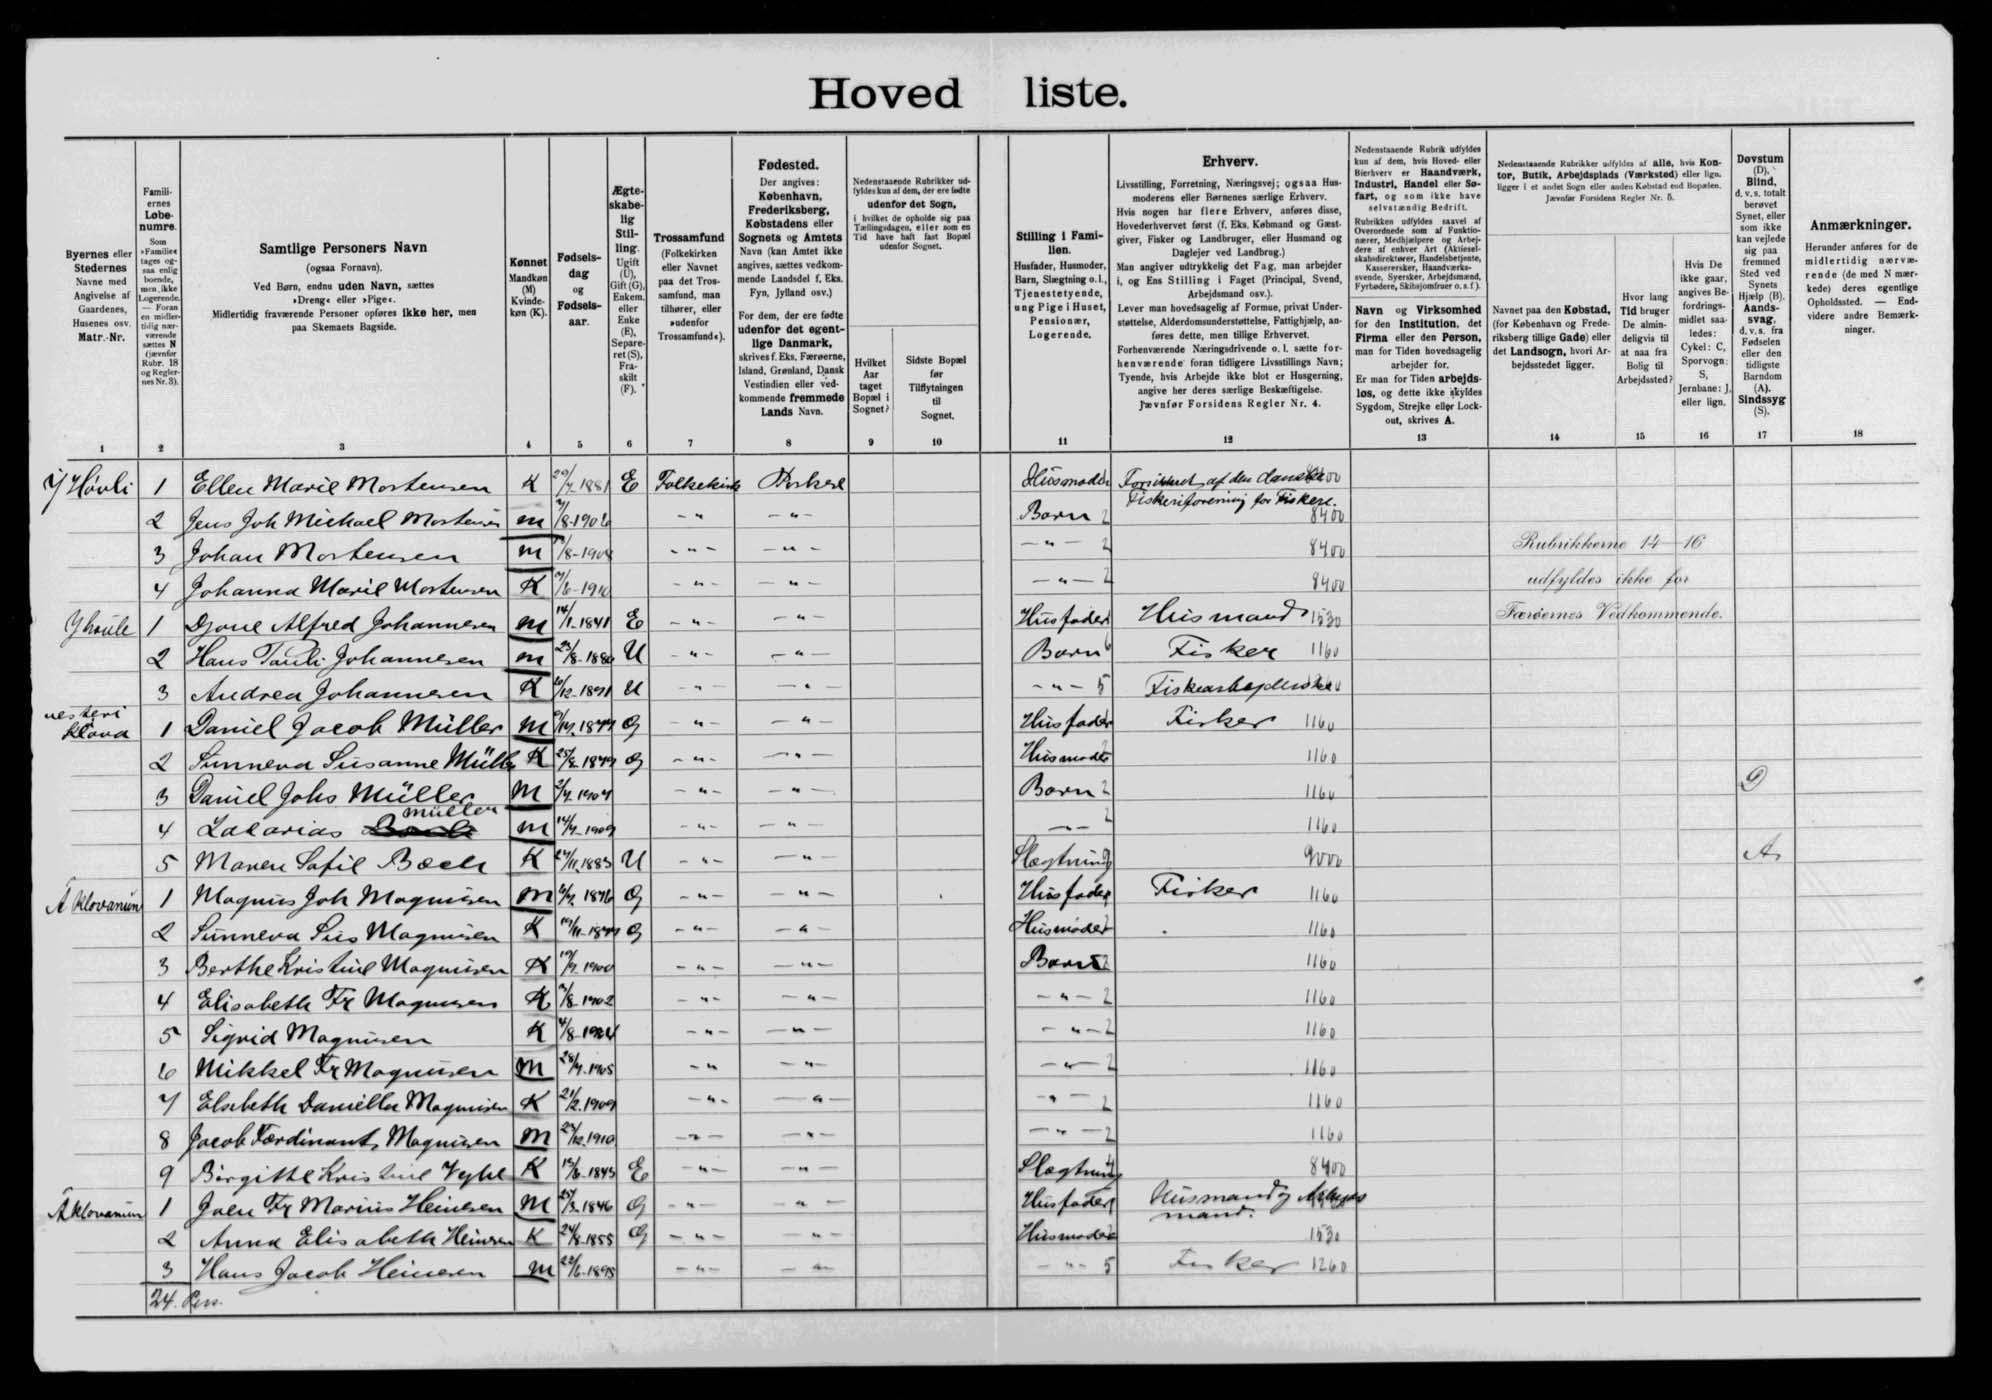 Hovedliste.
Byernes eller Stedernes Navne med Angivelse af Gaardenes, Husenes osv. Matr.-Nr.
Familiernes Løbenumre.
Som »Familie« tages ogsaa enlig boende, men ikke Logerende. — Foran en midlertidig nærværende sættes N (jævnfør Rubr. 18 og Reglernes Nr. 3).
Samtlige Personers Navn
(ogsaa Fornavn).
Ved Børn, endnu uden Navn, sættes »Dreng« eller »Pige«.
Midlertidig fraværende Personer opføres ikke her, men paa Skemaets Bagside.
Kønnet
Mandkøn (M) Kvindekøn (K).
Fødselsdag og Fødselsaar.
Ægteskabelig Stilling.
Ugift (U), Gift (G), Enkem. eller Enke (E), Separeret (S), Fraskilt (F).
Trossamfund
(Folkekirken eller Navnet paa det Trossamfund, man tilhører, eller »udenfor Trossamfund«).
Fødested.
Der angives: København, Frederiksberg, Købstadens eller Sognets og Amtets Navn (kan Amtet ikke angives, sættes vedkommende Landsdel f. Eks. Fyn, Jylland osv.)
For dem, der ere fødte udenfor det egentlige Danmark, skrives f. Eks. Færøerne, Island, Grønland, Dansk Vestindien eller vedkommende fremmede Lands Navn.
Nedenstaaende Rubrikker udfyldes kun af dem, der ere fødte udenfor det Sogn, i hvilket de opholde sig paa Tællingsdagen, eller som en Tid have haft fast Bopæl udenfor Sognet.
Hvilket Aar taget Bopæl i Sognet?
Sidste Bopæl før Tilflytningen til Sognet.
Stilling i Familien.
Husfader, Husmoder, Barn, Slægtning o. l., Tjenestetyende, ung Pige i Huset, Pensionær, Logerende.
Erhverv.
Livsstilling, Forretning, Næringsvej; ogsaa Husmoderens eller Børnenes særlige Erhverv.
Hvis nogen har flere Erhverv, anføres disse, Hovederhvervet først (f. Eks. Købmand og Gæstgiver, Fisker og Landbruger, eller Husmand og Daglejer ved Landbrug.)
Man angiver udtrykkelig det Fag, man arbejder i, og Ens Stilling i Faget (Principal, Svend, Arbejdsmand osv.).
Lever man hovedsagelig af Formue, privat Understøttelse, Alderdomsunderstøttelse, Fattighjælp, anføres dette, men tillige Erhvervet.
Forhenværende Næringsdrivende o. l. sætte forhenværende foran tidligere Livsstillings Navn; Tyende, hvis Arbejde ikke blot er Husgerning, angive her deres særlige Beskæftigelse.
Jævnfør Forsidens Regler Nr. 4.
Nedenstaaende Rubrik udfyldes kun af dem, hvis Hoved- eller Bierhverv er Haandværk, Industri, Handel eller Søfart, og som ikke have selvstændig Bedrift.
Rubrikken udfyldes saavel af Overordnede som af Funktionærer, Medhjælpere og Arbejdere af enhver Art (Aktieselskabsdirektører, Handelsbetjente, Kassererskør, Haandværkssvende, Syersker, Arbejdsmænd, Fyrbødere, Skibsjomfruer o. s. f.).
Navn og Virksomhed for den Institution, det Firma eller den Person, man for Tiden hovedsagelig arbejder for.
Er man for Tiden arbejdsløs, og dette ikke skyldes Sygdom, Strejke eller Lockout, skrives A.
Nedenstaaende Rubrikker udfyldes af alle, hvis Kontor, Butik, Arbejdsplads (Værksted) eller lign. ligger i et andet Sogn eller anden Købstad end Bopælen.
Jævnfør Forsidens Regler Nr. 5.
Navnet paa den Købstad, (for København og Frederiksberg tillige Gade) eller det Landsogn, hvori Arbejdsstedet ligger.
Hvor lang Tid bruger De almindeligvis til at naa fra Bolig til Arbejdssted?
Hvis De ikke gaar, angives Befordringsmidlet saaledes: Cykel: C, Sporvogn: S, Jernbane: J, eller lign.
Døvstum (D), Blind, d. v. s. totalt berøvet Synet, eller som ikke kan vejlede sig paa fremmed Sted ved Synets Hjælp (B). Aandssvag, d. v. s. fra Fødselen eller den tidligste Barndom (A). Sindssyg (S).
Anmærkninger.
Herunder anføres for de midlertidig nærværende (de med N mærkede) deres egentlige Opholdssted. — Endvidere andre Bemærkninger.
1 2 3 4 5 6 7 8 9 10 11 12 13 14 15 16 17 18
1 Ellen Marie Mortensen K 1881 E Folkekirk Husmoder Forsikret af den danske
Fiskeriforening for Fiskere.
2 Jens Joh Michael Mortensen M - " - - " - Barn 2 8400
3 Johan Mortensen M /8-1908 - " - - " - - " - 2 8400
Rubrikkerne 14—16
4 Johanna Marie Mortensen K /6-1910 - " - - " - - " - 2 8400
udfyldes ikke for
1 Djone Alfred Johannesen M 14/1-1841 E - " - - " - Husfader Husmand 1530
Færøernes Vedkommende.
2 Hans Pauli Johannesen M 23/8-1880 U - " - - " - Barn Fisker 1160
3 Andrea Johannesen K /12-1891 U - " - - " - - " - 5
1 Daniel Jacob Müller M G - " - - " - Husfader Fisker 1160
2 Sunneva Susanne Müller K G - " - - " - Husmoder 1160
3 Daniel Johs Müller M - " - - " - Barn 2 1160 D
4 Zacarias Müller M - " - - " - - " - 2 1160
5 Maren Sofie Bæch K /11.1883 U - " - - " - Slægtning 9000 A
Á Klovanum 1 Magnus Joh Magnusen M 1876 G - " - - " - Husfader Fisker 1160
2 Sunneva Sus Magnusen K G - " - - " - Husmoder 1160
3 Berthe Kristine Magnusen K 1900 - " - - " - Barn 2 1160
4 Elisabeth Fr Magnusen K /8-1902 - " - - " - - " - 2 1160
5 Sigrid Magnusen K /8-1904 - " - - " - - " - 2 1160
6 Mikkel Fr Magnusen M 1905 - " - - " - - " - 2 1160
7 Elsebeth Daniella Magnusen K 21/2.1909 - " - - " - - " - 2 1160
8 Jacob Færdinant Magnusen M /12.1910 - " - - " - - " - 2 1160
9 Birgitte Kristine K /6-1843 E - " - - " - Slægtning 8400
Á Klovanum 1 Joen Fr Marius Heinesen M 25/3-1846 G - " - - " - Husfader Husmand og
mand.
2 Anna Elisabeth Heinesen K 24/8-1855 G - " - - " - Husmoder 1530
3 Hans Jacob Heinesen M 22/6-1895 - " - - " - - " - 5 Fisker 1260
24. Pers.